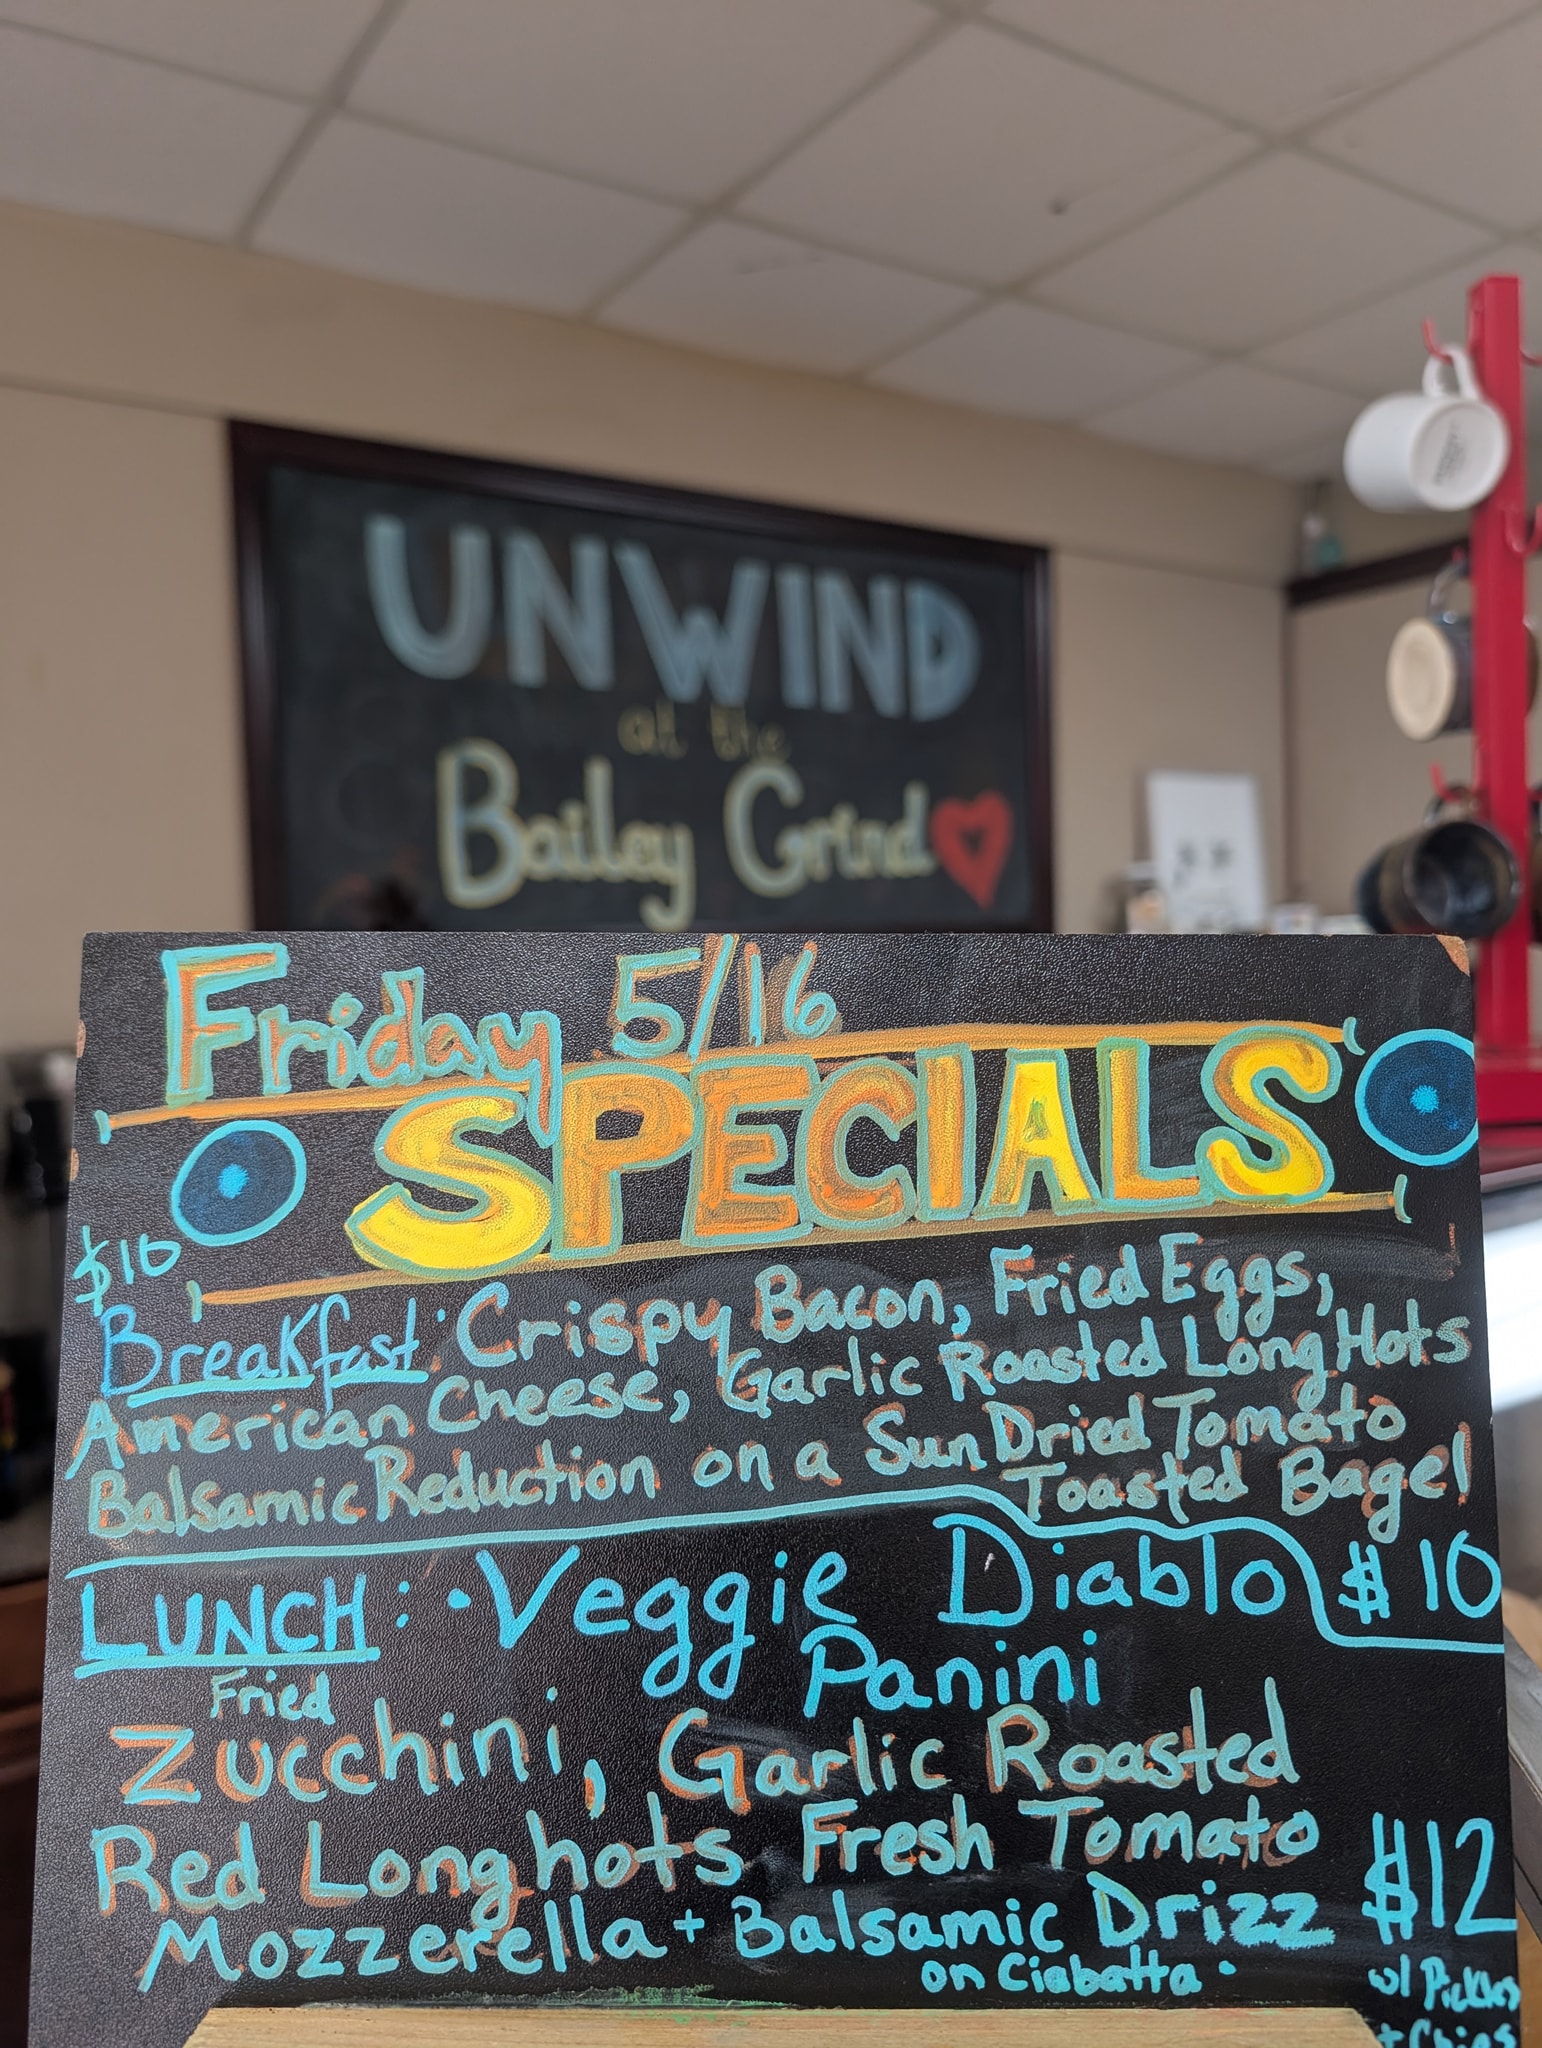 UNWIND
at the
Bailey Grind
Friday 5/16
SPECIALS
$10
Breakfast: Crispy Bacon, Fried Eggs,
American Cheese, Garlic Roasted Long Hots
Balsamic Reduction on a Sun Dried Tomato
Toasted Bagel
$10
LUNCH: • Veggie Diablo
Panini
Fried
Zucchini, Garlic Roasted
Red Longhots Fresh Tomato
Mozzerella + Balsamic Drizz
on Ciabatta •
$12
w/ Pickles
+ Chips